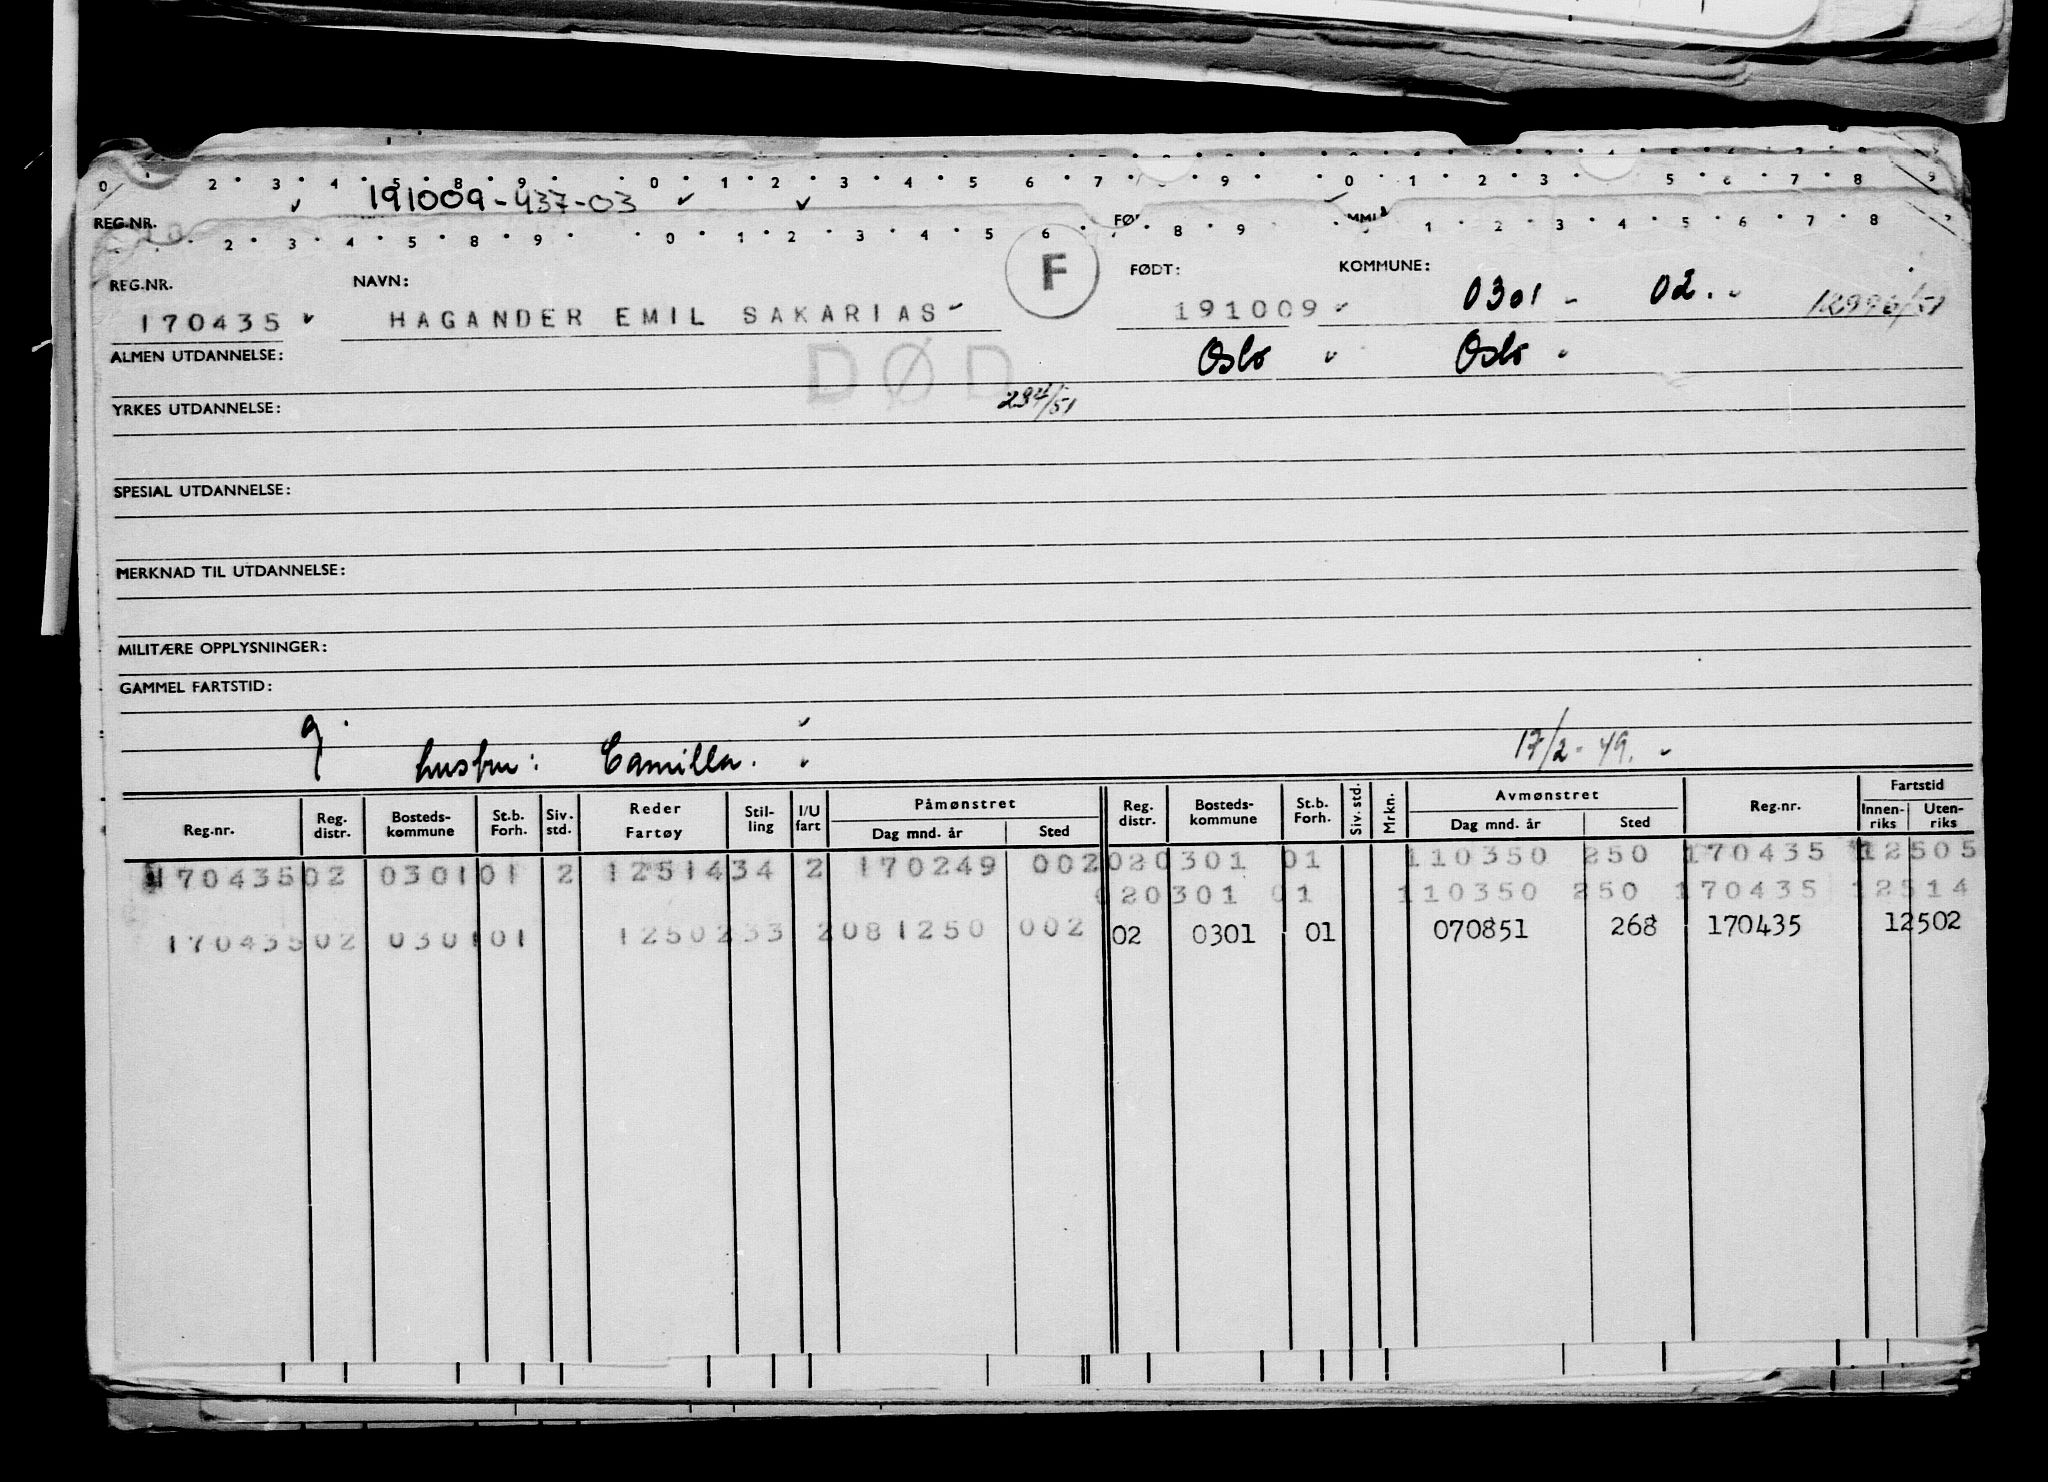 0 2 3 4 5 8 9 0 1 2 3 4 5 6 7 9 0 1 2 3 5 6 7 8 9
191009-437-03
REG.NR.
2 3 4 5 8 9 0 1 2 3 4 5 6 8 9 1 2 3 4 5 6 7 8
REG.NR. NAVN: F FØDT: KOMMUNE:
170435 HAGANDER EMIL SAKARIAS 191009 0301 - 02.
ALMEN UTDANNELSE: DØD Oslo Oslo
YRKES UTDANNELSE:
SPESIAL UTDANNELSE:
MERKNAD TIL UTDANNELSE:
MILITÆRE OPPLYSNINGER:
GAMMEL FARTSTID:
g. hustru: Camilla. 17/2-49.
Reg.nr. Reg. distr. Bosteds-kommune St.b. Forh. Siv. std. Reder Fartøy Stil-ling I/U fart Påmønstret Dag mnd. år Sted Reg. distr. Bosteds-kommune St.b. Forh. Siv. std. Mrkn. Avmønstret Dag mnd. år Sted Reg.nr. Fartstid Innen-riks Uten-riks
170435 02 0301 01 2 12514 34 2 170249 002 02 0301 01 110350 250 170435 12505
02 0301 01 110350 250 170435 12514
170435 02 0301 01 12502 33 2 081250 002 02 0301 01 070851 268 170435 12502